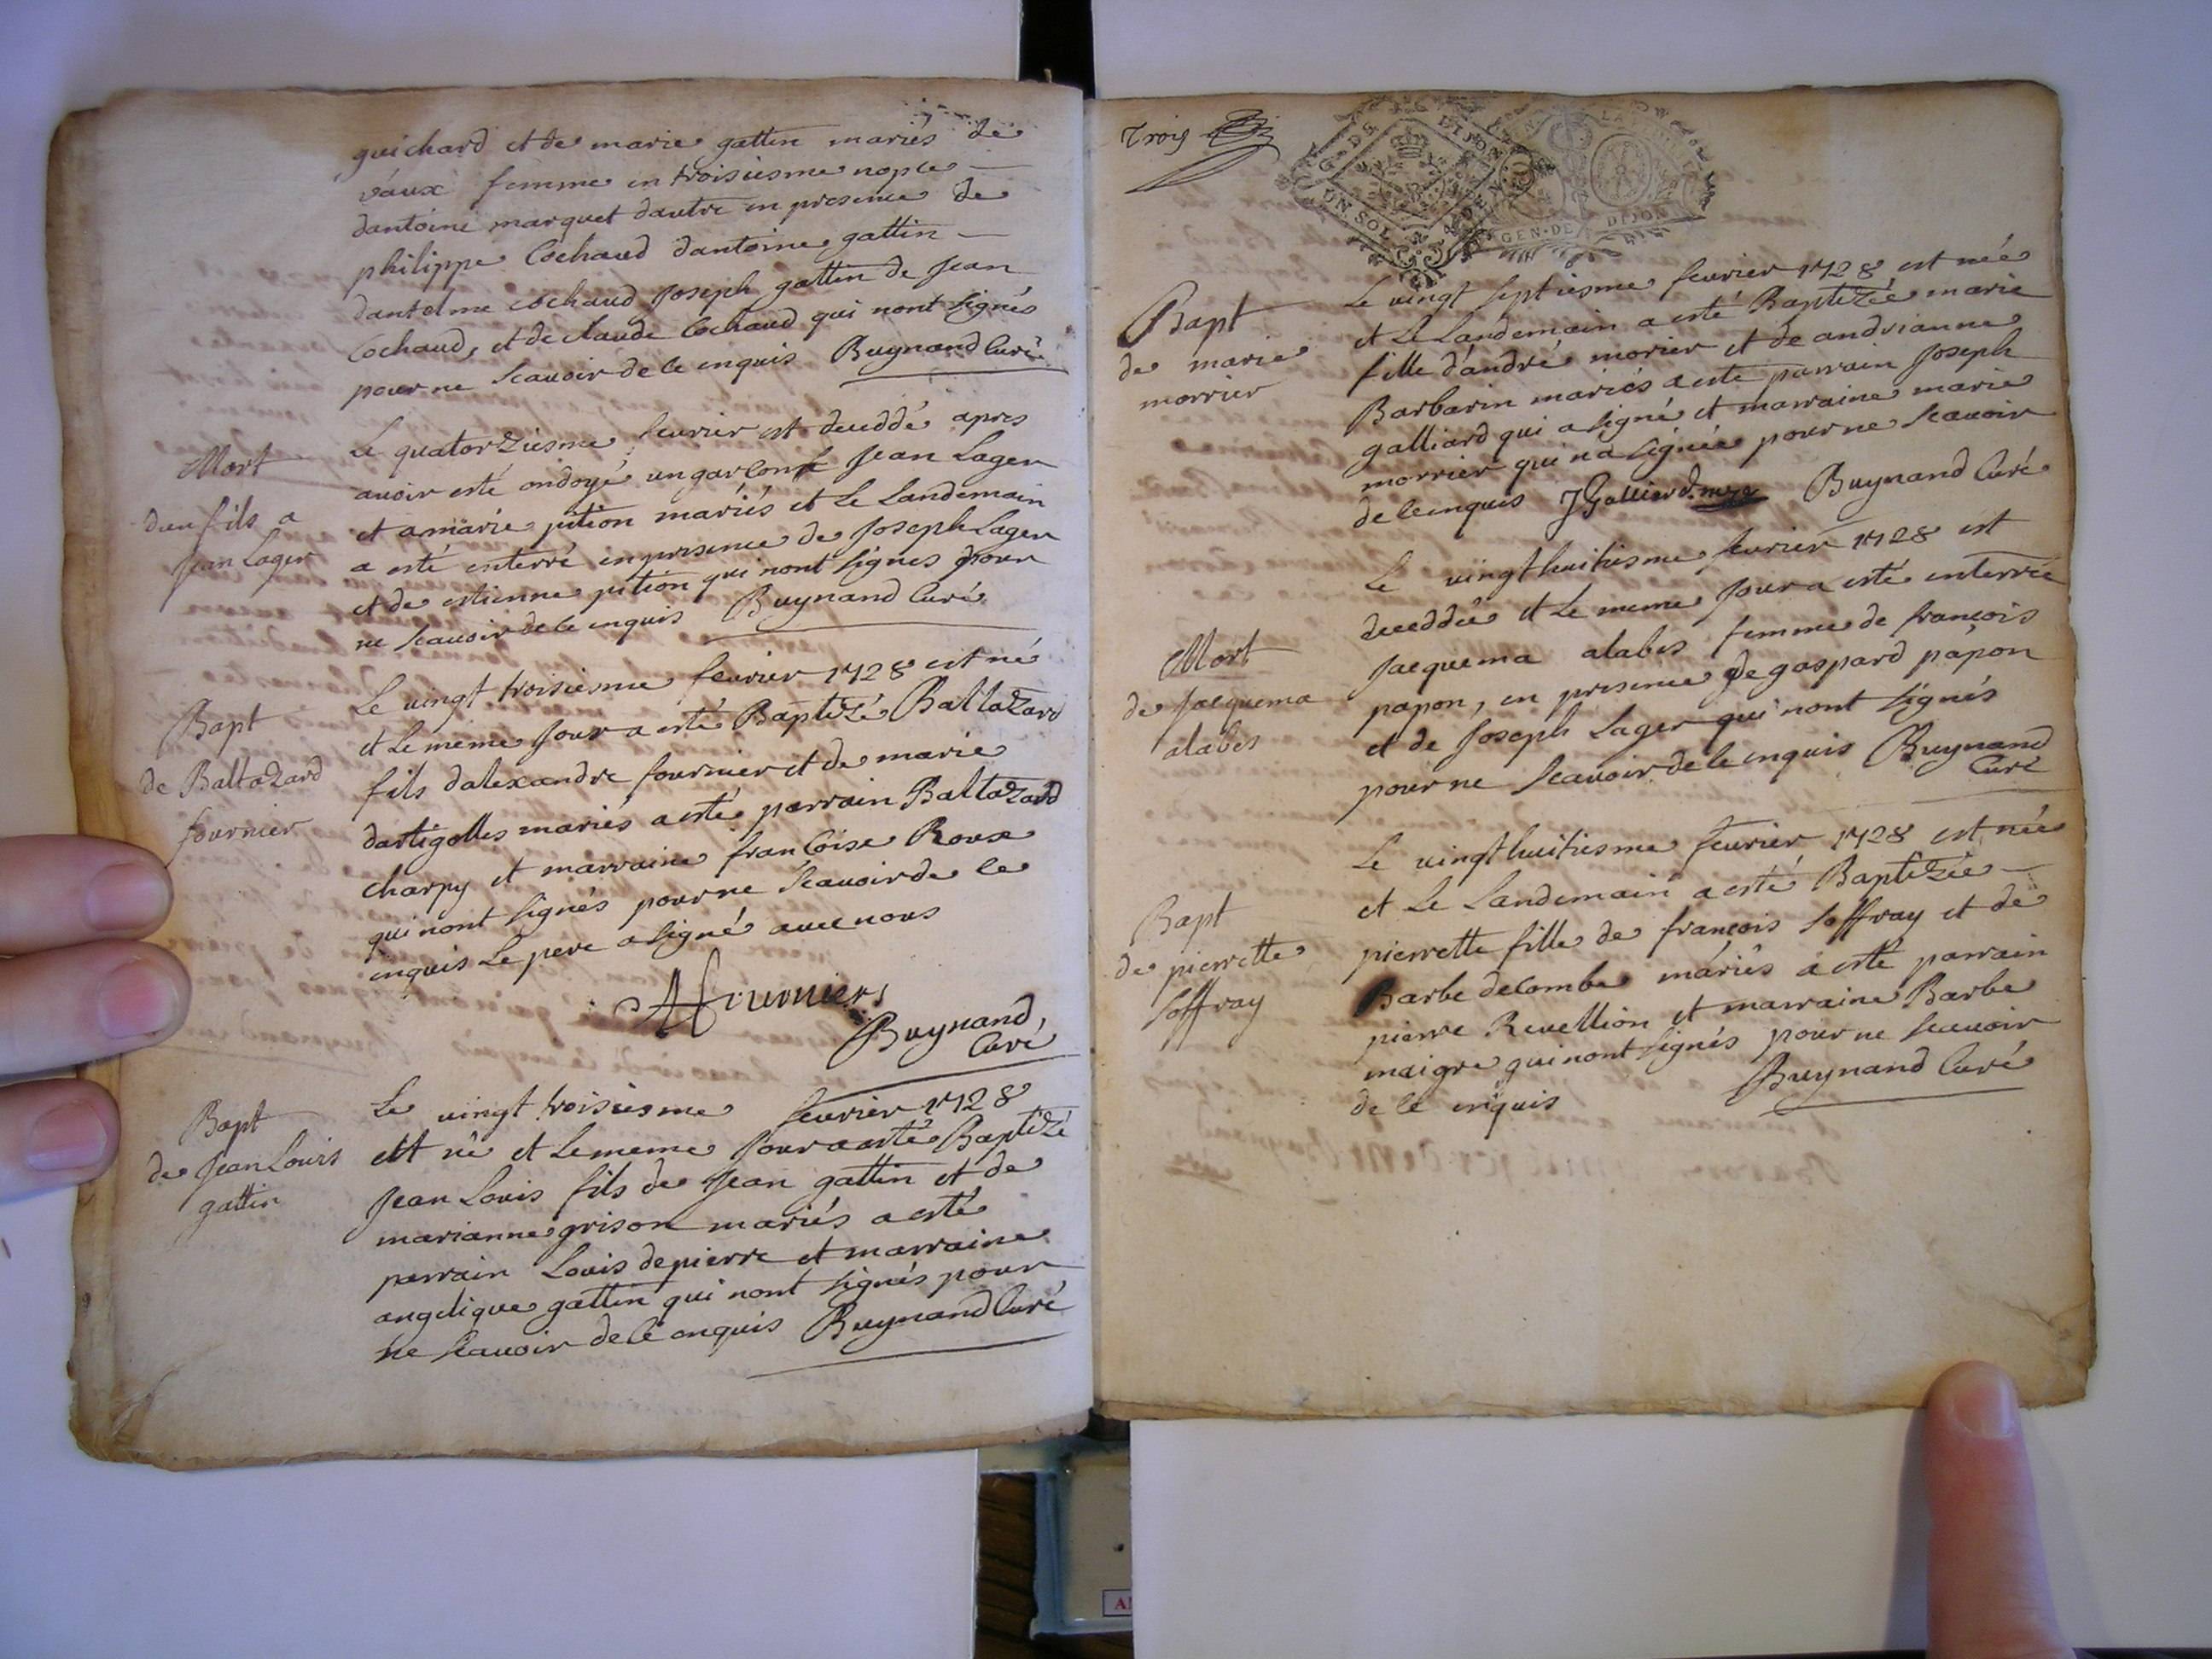 guichard et de marie gattin mariés de
vaux femme en troisiesme nopce
dantoine marquet dautre en presence de
philippe Cochaud dantoine gattin
dantelme cochaud Joseph gattin de Jean
Cochaud, et de claude Cochaud qui nont signés
pour ne scauoir de ce enquis Buynand Curé
Mort
dun fils a
Jean Lager
Le quatorziesme feurier est deceddé apres
auoir esté ondoyé un garcon a Jean Lager
et a marie pition mariés et Le Landemain
a esté enterré en presence de Joseph Lager
et de estienne pition qui nont signes pour
ne scauoir de ce enquis Buynand Curé
Bapt
de Baltazard
fournier
Le vingt troisiesme feurier 1728 est né
et Le meme Jour a esté Baptizé Baltazard
fils dalexandre fournier et de marie
dartigolles mariés a esté parrain Baltazard
charpy et marraine francoise Roux
qui nont signés pour ne scauoir de ce
enquis Le pere a signé auec nous
Afournier
Buynand
Curé
Bapt
de Jean Louis
gattin
Le vingt troisiesme feurier 1728
est né et Le meme Jour a esté Baptizé
Jean Louis fils de Jean gattin et de
marianne grison mariés a esté
parrain Louis depierre et marraine
angelique gattin qui nont signés pour
ne scauoir de ce enquis Buynand Curé
Trois
G. DE DIJON
UN SOL
GEN. DE DIJON
Bapt
de marie
morrier
Le vingt septiesme feurier 1728 est née
et Le Landemain a esté Baptizée marie
fille d'andré morier et de andrianne
Barbarin mariés a esté parrain Joseph
galliard qui a signé et marraine marie
morrier qui na signée pour ne scauoir
de ce enquis J Galliard Buynand Curé
Mort
de Jacquema
alabes
Le vingt huitiesme feurier 1728 est
deceddée et Le meme Jour a esté enterrée
Jacquema alabes femme de francois
papon, en presence de gaspard papon
et de Joseph Lager qui nont signés
pour ne scauoir de ce enquis Buynand
Curé
Bapt
de pierrette
soffray
Le vingt huitiesme feurier 1728 est née
et Le Landemain a esté Baptizée
pierrette fille de francois soffray et de
Barbe decombe mariés a esté parrain
pierre Reuellion et marraine Barbe
maigre qui nont signés pour ne scauoir
de ce enquis Buynand Curé